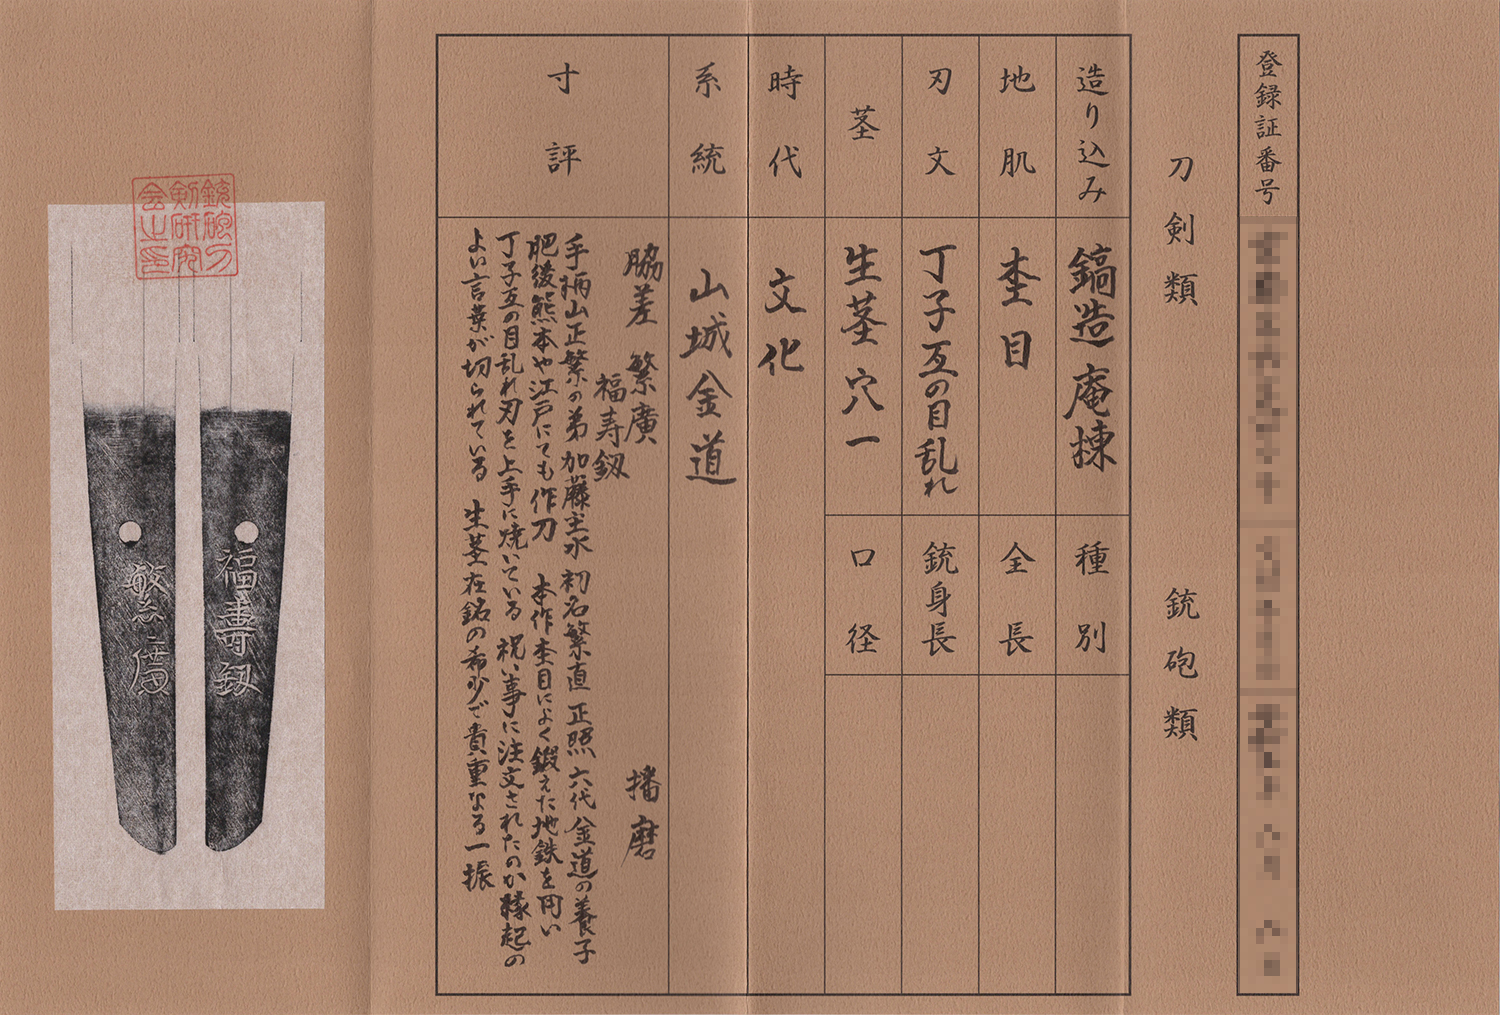 登録証番号
刀剣類
銃砲類
造り込み
鎬造庵棟
種別
地肌
杢目
全長
刃文
丁子互の目乱れ
銃身長
茎
生茎穴一
口径
時代
文化
系統
山城金道
寸評
脇差 繁廣 播磨
福寿釼
手柄山正繁の弟 加藤主水 初名繁直 正照 六代金道の養子
肥後熊本や江戸にても作刀 本作杢目によく鍛えた地鉄を用い
丁子互の目乱れ刃を上手に焼いている 祝い事に注文されたのか縁起の
よい言葉が切られている 生茎在銘の希少で貴重なる一振
銃砲刀
剣研究
会之印
福壽釼
繁廣